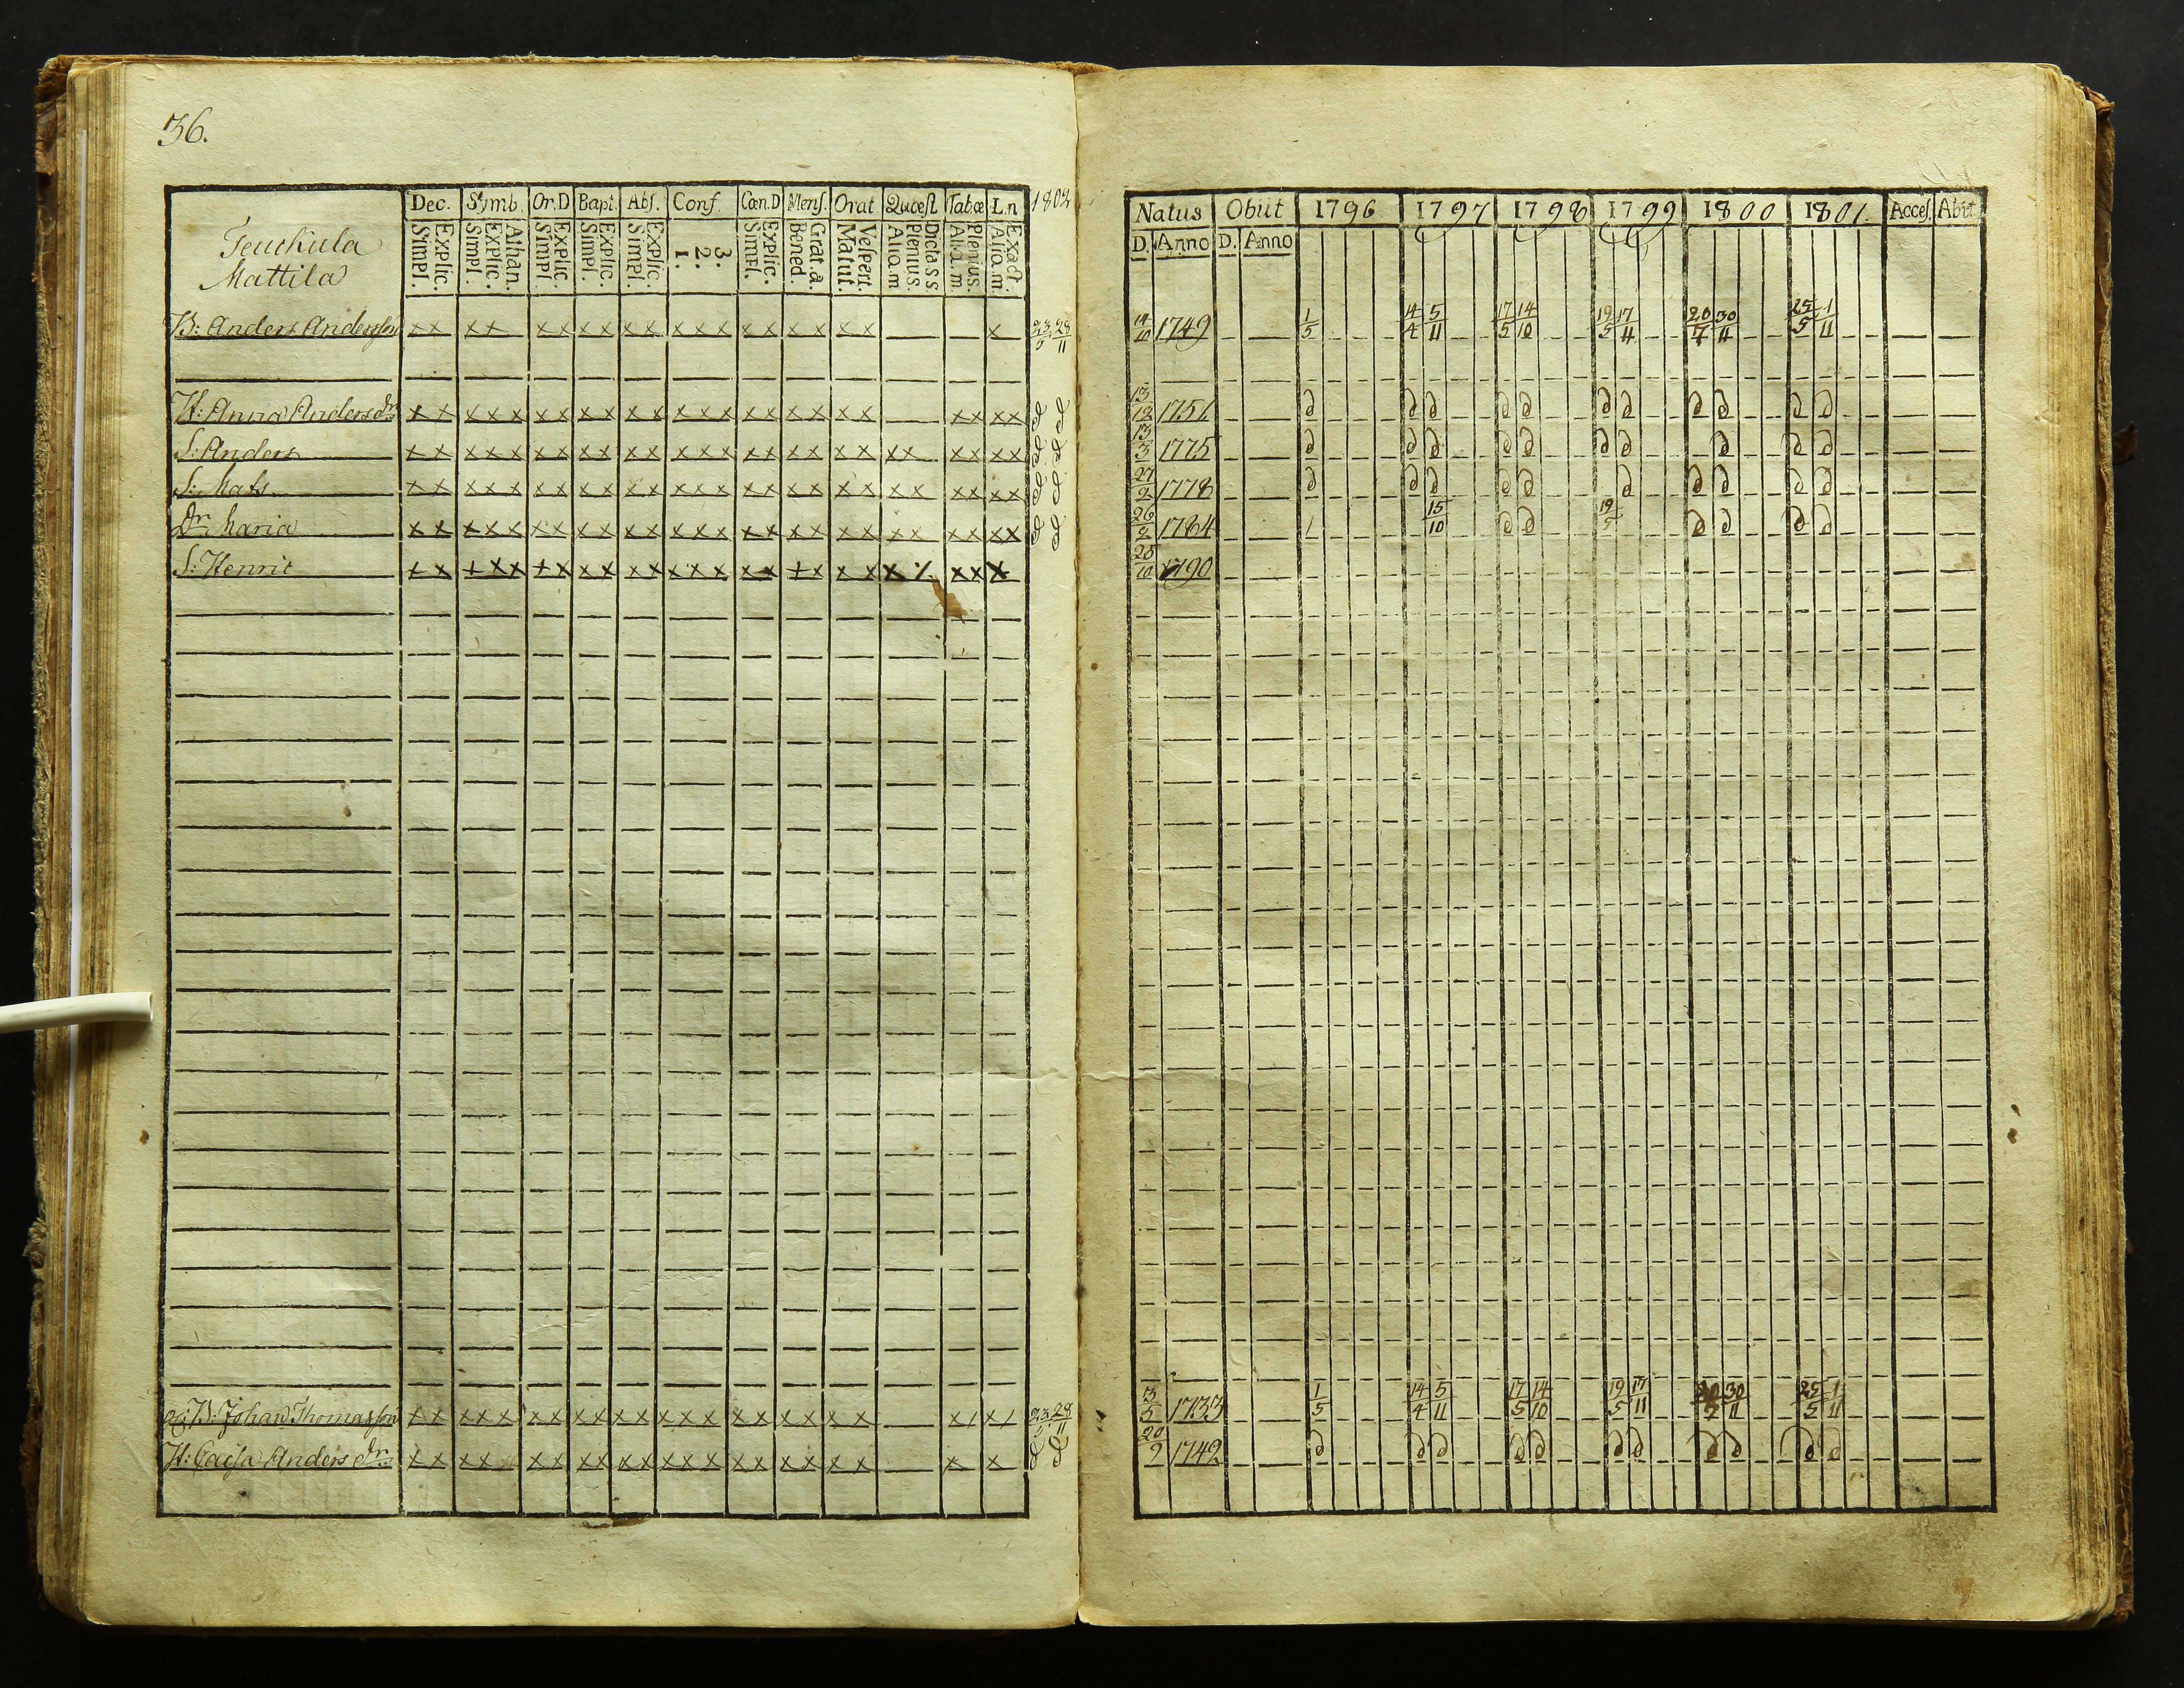 36.
Dec. Symb. Or.D Bapt. Abs. Conf. Cœn.D Mens. Orat. Quæst. Tabæ L.n 1802
Teuckula
Mattila
Simpl. Explic. Simpl. Explic. Athan. Simpl. Explic. Simpl. Explic. Simpl. Explic. 1. 2. 3. Simpl. Explic. Bened. Grat.a. Matut. Vespert. Aliq.m Plenius. Dict.a s s Aliq.m. Plenius. Aliq.m. Exact.
B: Anders Andersson x x x x x x x x x x x x x x x x x x x x 23/5 28/11
H: Anna Anders dr x x x x x x x x x x x x x x x x x x x x x x x x d d
S: Anders x x x x x x x x x x x x x x x x x x x x x x x x x x d d
S: Mats x x x x x x x x x x x x x x x x x x x x x x x x x x d d
Dr Maria x x x x x x x x x x x x x x x x x x x x x x x x x x d d
S: Henric x x x x x x x x x x x x x x x x x x x x x ⁒ x x x
B: Johan Thomasson x x x x x x x x x x x x x x x x x x x x x / x / 23/5 28/11
H: Cajsa Anders dr x x x x x x x x x x x x x x x x x x x x x d d
Natus Obiit 1796 1797 1798 1799 1800 1801. Acces. Abiit
D. Anno D. Anno
14/10 1749 1/5 14/4 5/11 17/5 14/10 19/5 17/11 20/7 30/11 25/5 1/11
13/12 1751 d d d d d d d d d d d
13/3 1775 d d d d d d d d d d
27/2 1778 d d d d d d d d d d
26/2 1784 1 15/10 d d 19/5 d d d d
28/10 1790
13/5 1733 1/5 14/4 5/11 17/5 14/10 19/5 17/11 20/7 30/11 25/5 1/11
20/9 1742 d d d d d d d d d d d